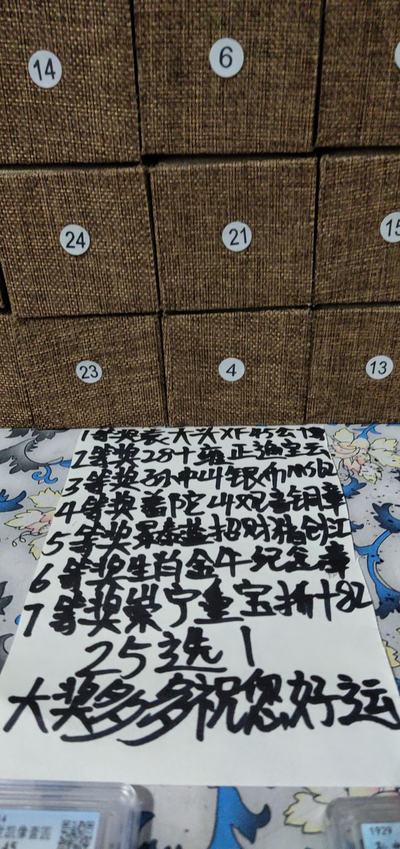 14
6
24
21
15
23
4
13
1等奖袁大头XF
2等奖28
3等奖孙中山银币MS62
4等奖普陀山观音铜章
5等奖景泰蓝招财猪
6等奖生肖金牛纪念章
7等奖崇宁重宝折十82
25选1
大奖多多祝您好运
45
1929